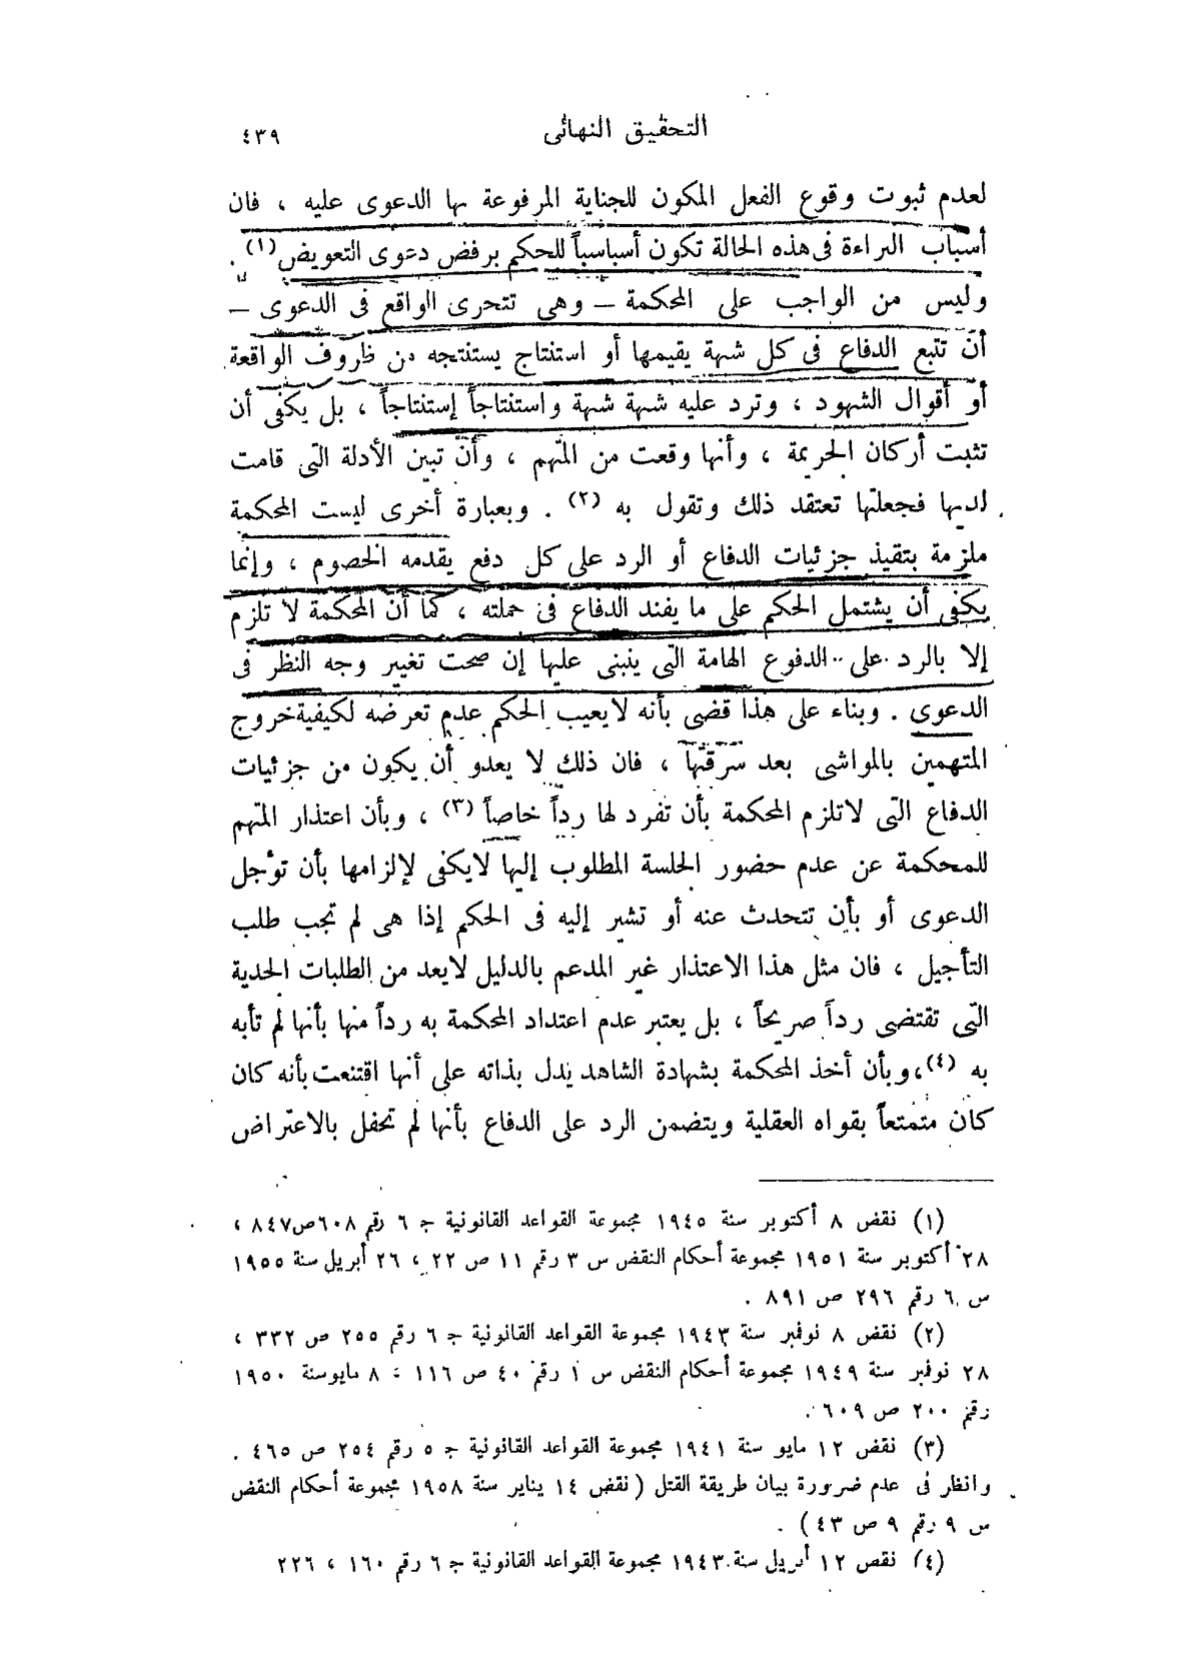 التحقيق النهائى
٤٣٩
لعدم ثبوت وقوع الفعل المكون للجناية المرفوعة بها الدعوى عليه ، فان
أسباب البراءة فى هذه الحالة تكون أسباسباً للحكم برفض دعوى التعويض (١) .
وليس من الواجب على المحكمة – وهى تتحرى الواقع فى الدعوى –
أن تتبع الدفاع فى كل شبهة يقيمها أو استنتاج يستنتجه من ظروف الواقعة
أو أقوال الشهود ، وترد عليه شبهة شبهة واستنتاجاً إستنتاجاً ، بل يكفى أن
تثبت أركان الجريمة ، وأنها وقعت من المتهم ، وأن تبين الأدلة التى قامت
لديها فجعلتها تعتقد ذلك وتقول به (٢) . وبعبارة أخرى ليست المحكمة
ملزمة بتقيذ جزئيات الدفاع أو الرد على كل دفع يقدمه الخصوم ، وإنما
يكفى أن يشتمل الحكم على ما يفند الدفاع فى جملته ، كما أن المحكمة لا تلزم
إلا بالرد على الدفوع الهامة التى ينبنى عليها إن صحت تغيير وجه النظر فى
الدعوى . وبناء على هذا قضى بأنه لا يعيب الحكم عدم تعرضه لكيفية خروج
المتهمين بالمواشى بعد سرقتها ، فان ذلك لا يعدو أن يكون من جزئيات
الدفاع التى لا تلزم المحكمة بأن تفرد لها رداً خاصاً (٣) ، وبأن اعتذار المتهم
للمحكمة عن عدم حضور الجلسة المطلوب إليها لا يكفى لإلزامها بأن تؤجل
الدعوى أو بأن تتحدث عنه أو تشير إليه فى الحكم إذا هى لم تجب طلب
التأجيل ، فان مثل هذا الاعتذار غير المدعم بالدليل لا يعد من الطلبات الجدية
التى تقتضى رداً صريحاً ، بل يعتبر عدم اعتداد المحكمة به رداً منها بأنها لم تأبه
به (٤)، وبأن أخذ المحكمة بشهادة الشاهد يدل بذاته على أنها اقتنعت بأنه كان
كان متمتعاً بقواه العقلية ويتضمن الرد على الدفاع بأنها لم تحفل بالاعتراض
(١) نقض ٨ أكتوبر سنة ١٩٤٥ مجموعة القواعد القانونية جـ ٦ رقم ٦٠٨ ص ٨٤٧ ،
٢٨ أكتوبر سنة ١٩٥١ مجموعة أحكام النقض س ٣ رقم ١١ ص ٢٢ ، ٢٦ أبريل سنة ١٩٥٥
س ٦ رقم ٢٩٦ ص ٨٩١ .
(٢) نقض ٨ نوفمبر سنة ١٩٤٣ مجموعة القواعد القانونية جـ ٦ رقم ٢٥٥ ص ٣٣٢ ،
٢٨ نوفمبر سنة ١٩٤٩ مجموعة أحكام النقض س ١ رقم ٤٠ ص ١١٦ ، ٨ مايو سنة ١٩٥٠
رقم ٢٠٠ ص ٦٠٩ .
(٣) نقض ١٢ مايو سنة ١٩٤١ مجموعة القواعد القانونية جـ ٥ رقم ٢٥٤ ص ٤٦٥ .
وانظر فى عدم ضرورة بيان طريقة القتل ( نقض ١٤ يناير سنة ١٩٥٨ مجموعة أحكام النقض
س ٩ رقم ٩ ص ٤٣ ) .
(٤) نقض ١٢ أبريل سنة ١٩٤٣ مجموعة القواعد القانونية جـ ٦ رقم ١٦٠ ، ٢٢٦